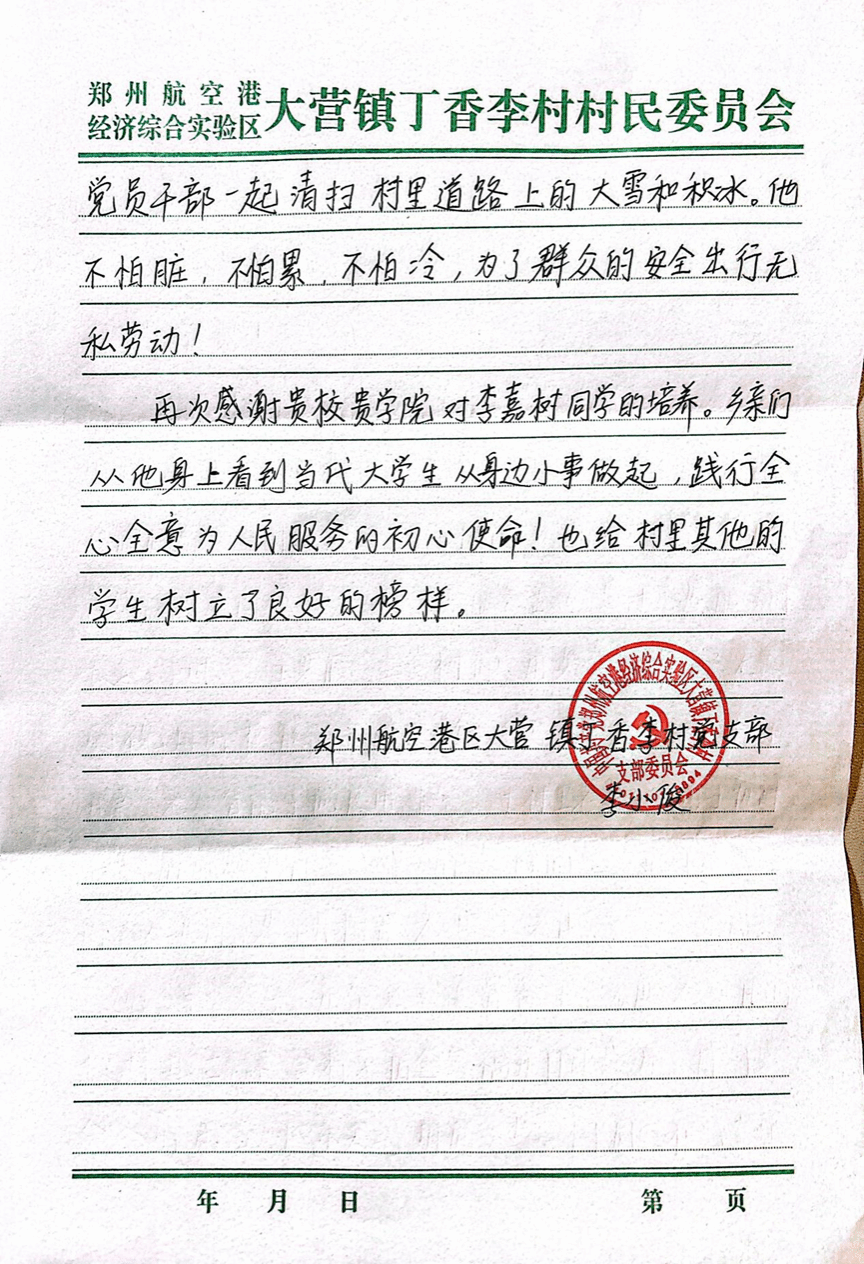 郑州航空港
经济综合实验区
大营镇丁香李村村民委员会
党员干部一起清扫村里道路上的大雪和积冰。他
不怕脏，不怕累，不怕冷，为了群众的安全出行无
私劳动！
再次感谢贵校贵学院对李嘉树同学的培养。乡亲们
从他身上看到当代大学生从身边小事做起，践行全
心全意为人民服务的初心使命！也给村里其他的
学生树立了良好的榜样。
中国共产党郑州航空港经济综合实验区大营镇丁香李村
支部委员会
郑州航空港区大营镇丁香李村党支部
李小俊
年 月 日
第 页